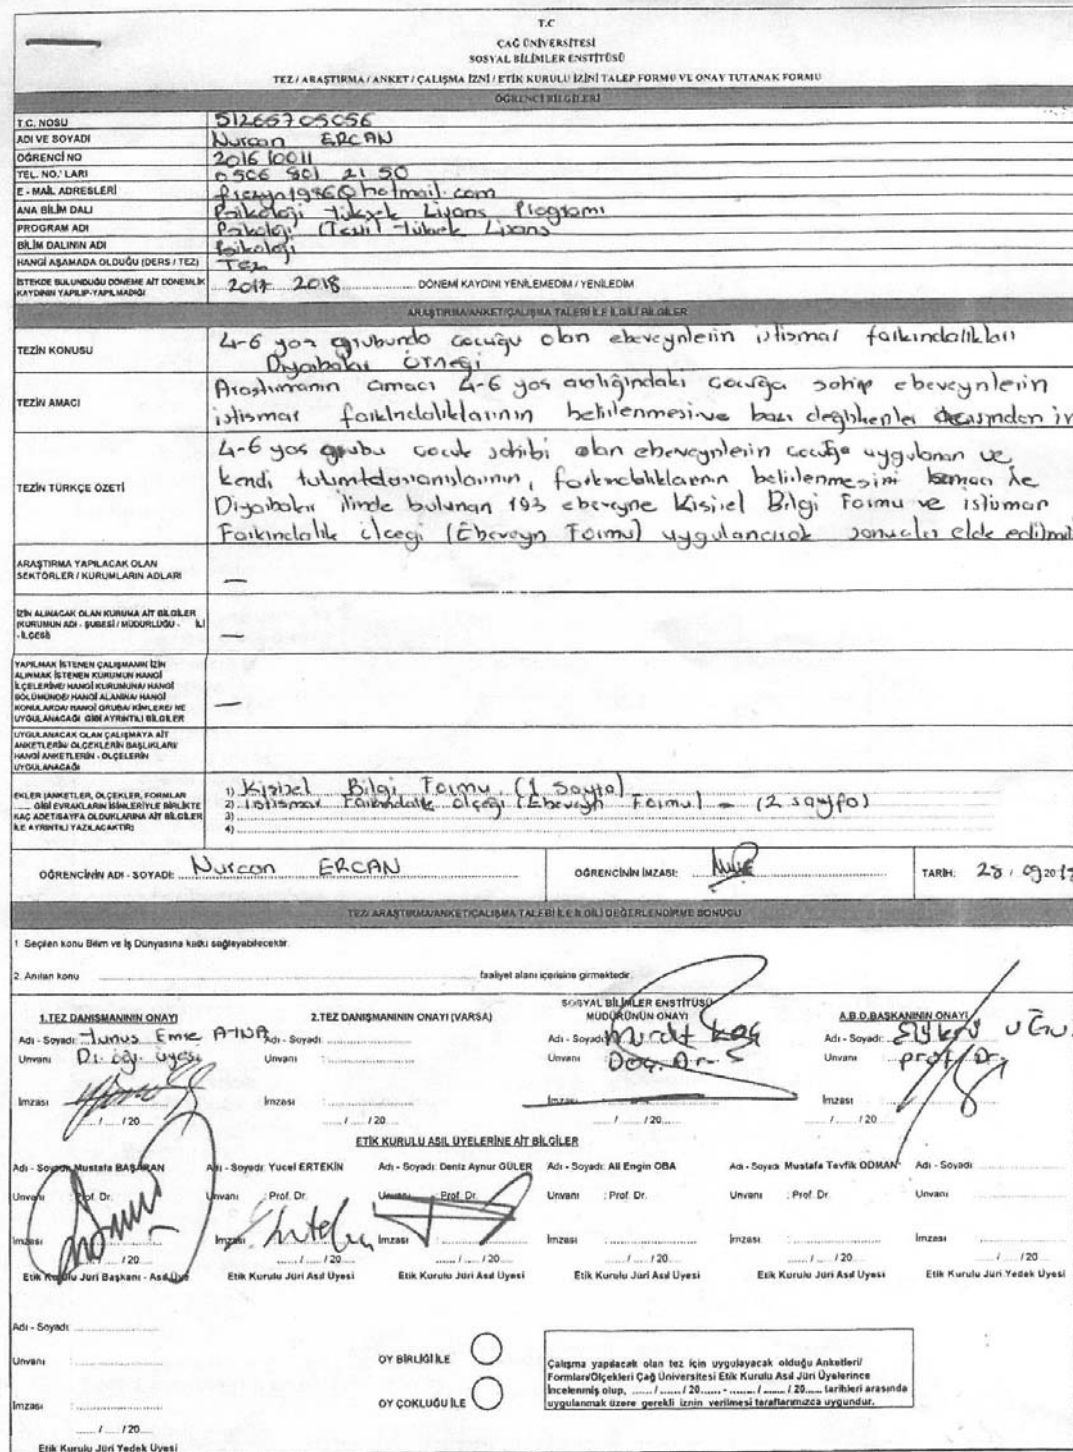 T.C
ÇAĞ ÜNİVERSİTESİ
SOSYAL BİLİMLER ENSTİTÜSÜ
TEZ / ARAŞTIRMA / ANKET / ÇALIŞMA İZNİ / ETİK KURULU İZİNİ TALEP FORMU VE ONAY TUTANAK FORMU
ÖĞRENCİ BİLGİLERİ
T.C. NOSU 51265705056
ADI VE SOYADI Nurcan ERCAN
ÖĞRENCİ NO 201610011
TEL. NO.' LARI 0506 801 21 50
E - MAİL ADRESLERİ @hotmail.com
ANA BİLİM DALI Psikoloji Yüksek Lisans Programı
PROGRAM ADI Psikoloji (Tezli Yüksek Lisans
BİLİM DALININ ADI Psikoloji
HANGİ AŞAMADA OLDUĞU (DERS / TEZ) Tez
İSTEKDE BULUNDUĞU DÖNEME AİT DÖNEMLİK KAYDININ YAPILIP-YAPILMADIĞI 2017 2018 DÖNEMİ KAYDINI YENİLEMEDİM / YENİLEDİM
ARAŞTIRMA/ANKET/ÇALIŞMA TALEBİ İLE İLGİLİ BİLGİLER
TEZİN KONUSU 4-6 yaş grubunda çocuğu olan ebeveynlerin istismar farkındalıkları
Diyarbakır Örneği
TEZİN AMACI Araştırmanın amacı 4-6 yaş aralığındaki çocuğa sahip ebeveynlerin
istismar farkındalıklarının belirlenmesi ve bazı değişkenler açısından in
TEZİN TÜRKÇE ÖZETİ 4-6 yaş grubu çocuk sahibi olan ebeveynlerin çocuğa uygulanan ve
kendi farkındalıklarının belirlenmesini
Diyarbakır ilinde bulunan 193 ebeveyne Kişisel Bilgi Formu ve istismar
Farkındalık ölçeği (Ebeveyn Formu) uygulanarak sonuçlar elde edilmiş
ARAŞTIRMA YAPILACAK OLAN
SEKTÖRLER / KURUMLARIN ADLARI —
İZİN ALINACAK OLAN KURUMA AİT BİLGİLER
(KURUMUN ADI - ŞUBESİ / MÜDÜRLÜĞÜ - İLİ
- İLÇESİ) —
YAPILMAK İSTENEN ÇALIŞMANIN İZİN
ALINMAK İSTENEN KURUMUN HANGİ
İLÇELERİNE/ HANGİ KURUMUNA/ HANGİ
BÖLÜMÜNDE/ HANGİ ALANINA/ HANGİ
KONULARDA/ HANGİ GRUBA/ KİMLERE/ NE
UYGULANACAĞI GİBİ AYRINTILI BİLGİLER —
UYGULANACAK OLAN ÇALIŞMAYA AİT
ANKETLERİN/ ÖLÇEKLERİN BAŞLIKLARI/
HANGİ ANKETLERİN - ÖLÇELERİN
UYGULANACAĞI
EKLER (ANKETLER, ÖLÇEKLER, FORMLAR
....... GİBİ EVRAKLARIN İSİMLERİYLE BİRLİKTE
KAÇ ADET/SAYFA OLDUKLARINA AİT BİLGİLER
İLE AYRINTILI YAZILACAKTIR)
1) Kişisel Bilgi Formu (1 Sayfa)
2) İstismar Farkındalık Ölçeği (Ebeveyn Formu) - (2 sayfa)
3)
4)
ÖĞRENCİNİN ADI - SOYADI: Nurcan ERCAN ÖĞRENCİNİN İMZASI: TARİH: 28 / 09 201
TEZ/ ARAŞTIRMA/ANKET/ÇALIŞMA TALEBİ İLE İLGİLİ DEĞERLENDİRME SONUCU
1. Seçilen konu Bilim ve İş Dünyasına katkı sağlayabilecektir.
2. Anılan konu faaliyet alanı içerisine girmektedir.
1.TEZ DANIŞMANININ ONAYI 2.TEZ DANIŞMANININ ONAYI (VARSA) SOSYAL BİLİMLER ENSTİTÜSÜ MÜDÜRÜNÜN ONAYI A.B.D.BAŞKANININ ONAYI
Adı - Soyadı: Yunus Emre Adı - Soyadı: Adı - Soyadı: Murat Koç Adı - Soyadı:
Unvanı Dr. öğr. üyesi Unvanı : Unvanı : Doç. Dr. Unvanı : prof. Dr.
İmzası İmzası : İmzası : İmzası :
..... / ..... /20..... ..... / ..... /20..... ..... / ..... /20..... ..... / ..... /20.....
ETİK KURULU ASIL ÜYELERİNE AİT BİLGİLER
Adı - Soyadı: Mustafa BAŞARAN Adı - Soyadı: Yucel ERTEKİN Adı - Soyadı: Deniz Aynur GÜLER Adı - Soyadı: Ali Engin OBA Adı - Soyadı Mustafa Tevfik ODMAN Adı - Soyadı:
Unvanı : Prof. Dr. Unvanı : Prof. Dr. Unvanı : Prof. Dr. Unvanı : Prof. Dr. Unvanı : Prof. Dr. Unvanı :
İmzası İmzası İmzası: İmzası: İmzası: İmzası :
..... / ..... /20..... ..... / ..... /20..... ..... / ..... /20..... ..... / ..... /20..... ..... / ..... /20..... ..... / ..... /20.....
Etik Kurulu Jüri Başkanı - Asıl Üye Etik Kurulu Jüri Asıl Üyesi Etik Kurulu Jüri Asıl Üyesi Etik Kurulu Jüri Asıl Üyesi Etik Kurulu Jüri Asıl Üyesi Etik Kurulu Jüri Yedek Üyesi
Adı - Soyadı:
Unvanı :
İmzası :
..... / ..... /20.....
Etik Kurulu Jüri Yedek Üyesi
OY BİRLİĞİ İLE
OY ÇOKLUĞU İLE
Çalışma yapılacak olan tez için uygulayacak olduğu Anketleri/
Formları/Ölçekleri Çağ Üniversitesi Etik Kurulu Asıl Jüri Üyelerince
İncelenmiş olup, ...... / ...... / 20...... - ...... / ...... / 20...... tarihleri arasında
uygulanmak üzere gerekli iznin verilmesi taraflarımızca uygundur.